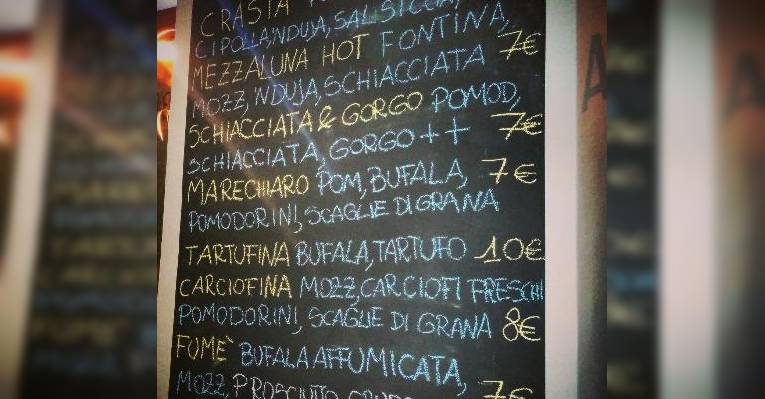 CRASTA
CIPOLLA, NDUJA, SALSICCIA,
MEZZALUNA HOT FONTINA,
MOZZ, 'NDUJA, SCHIACCIATA 7€
SCHIACCIATA & GORGO POMOD,
SCHIACCIATA, GORGO ++ 7€
MARECHIARO POM, BUFALA, 7€
POMODORINI, SCAGLIE DI GRANA
TARTUFINA BUFALA, TARTUFO 10€
CARCIOFINA MOZZ, CARCIOFI FRESCHI
POMODORINI, SCAGLIE DI GRANA 8€
FUME` BUFALA AFFUMICATA,
MOZZ, PROSCIUTTO 7€